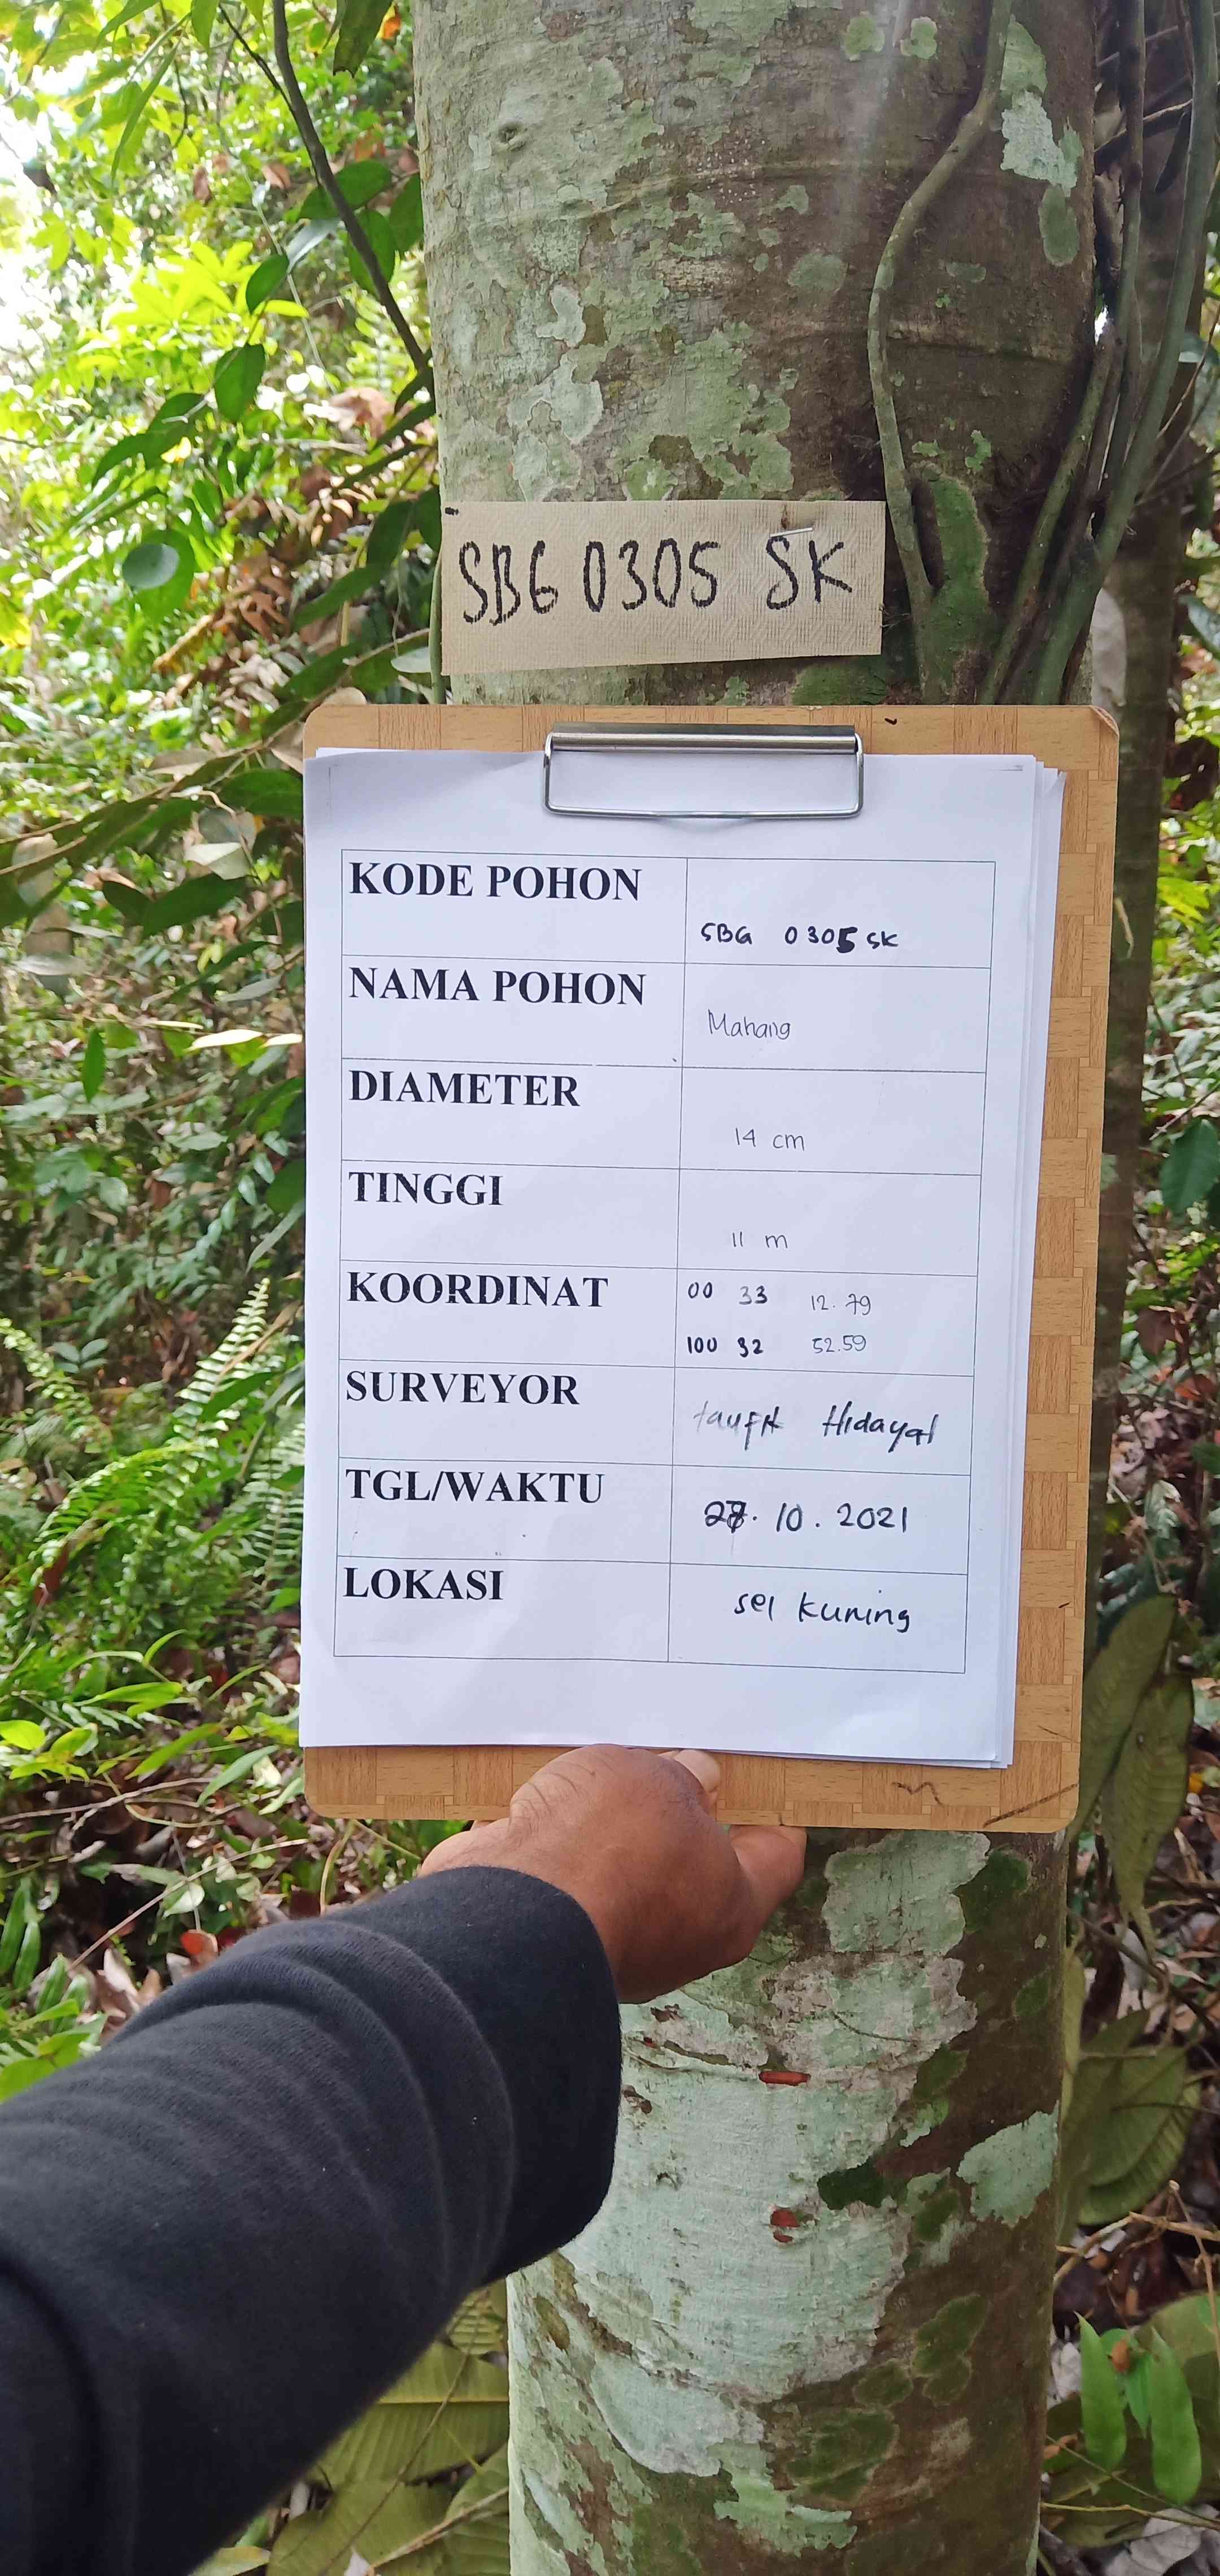 SBG 0305 SK
KODE POHON
SBG 0305 SK
NAMA POHON
Mahang
DIAMETER
14 cm
TINGGI
11 m
KOORDINAT
00 33 12.79
100 32 52.59
SURVEYOR
taufik Hidayat
TGL/WAKTU
10.2021
LOKASI
sei kuning